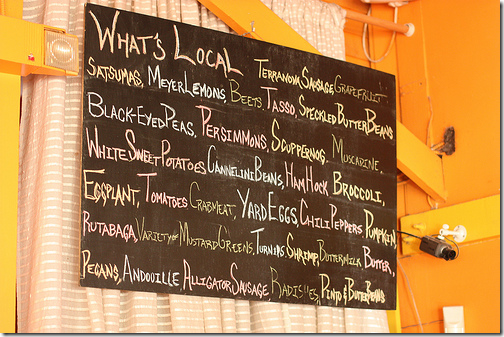 What's Local
Terranova Sausage Grapefruit
Satsumas, Meyer Lemons, Beets, Tasso, Speckled Butter Beans
Black-Eyed Peas, Persimmons, Scuppernog, Muscadine,
White Sweet Potatoes Cannelini Beans, Ham Hock Broccoli,
Eggplant, Tomatoes Crabmeat, Yard Eggs Chili Peppers Pumpkin
Rutabaga, Variety of Mustard Greens, Turnips Shrimp, Buttermilk Butter,
Pecans, Andouille Alligator Sausage, Radishes, Pinto & Butter Beans